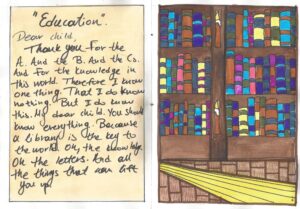 "Education".
Dear child.
Thank you For the
A. And the B. And the Cs.
And For the knowledge in
this world. Therefore I know
one thing. That I do know
nothing. But I do know
this. My dear child. You should
know everything. Because
a library is the key to
the world. Oh, the knowledge
Oh the letters. And all
the things that can lift
you up.